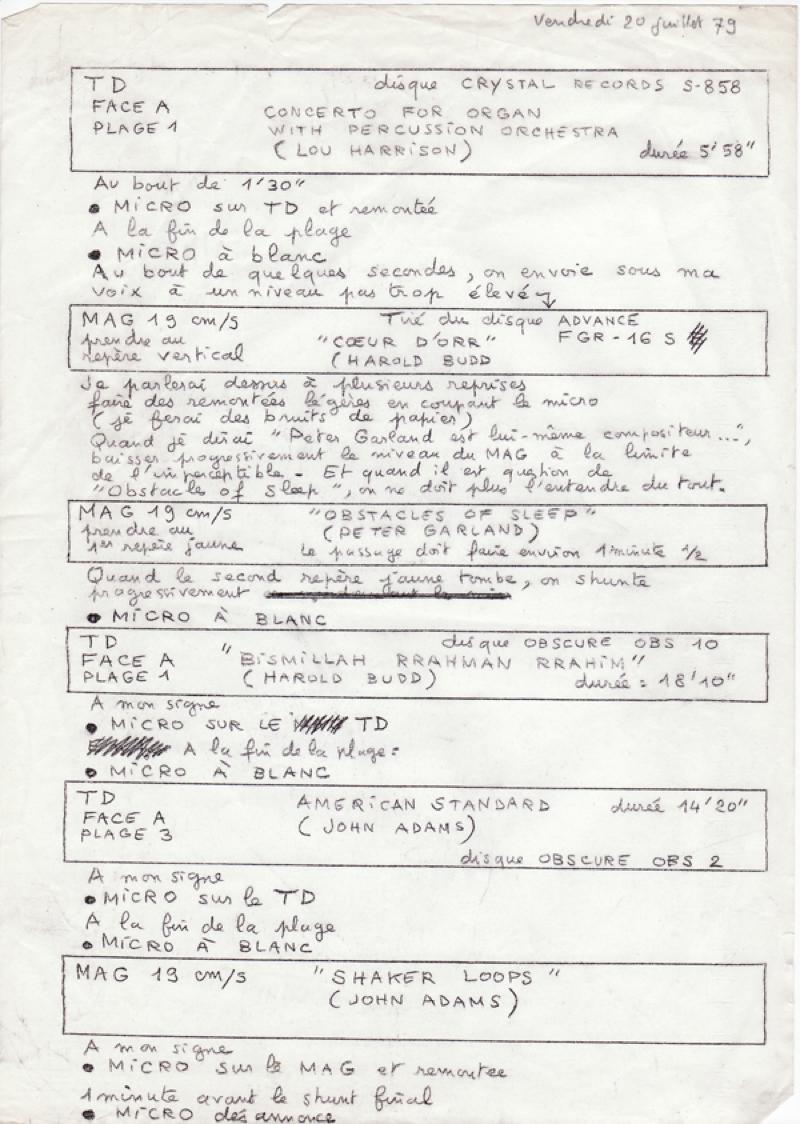 Vendredi 20 juillet 79
TD disque CRYSTAL RECORDS S-858
FACE A CONCERTO FOR ORGAN
PLAGE 1 WITH PERCUSSION ORCHESTRA
(LOU HARRISON) durée 5'58"
Au bout de 1'30"
• MICRO sur TD et remontée
A la fin de la plage
• MICRO à blanc
Au bout de quelques secondes, on envoie sous ma
voix à un niveau pas trop élevé
MAG 19 cm/s Tiré du disque ADVANCE
prendre au "CŒUR D'ORR" FGR-16 S
repère vertical (HAROLD BUDD
Je parlerai dessus à plusieurs reprises
faire des remontées légères en coupant le micro
(je ferai des bruits de papier)
Quand je dirai "Peter Garland est lui-même compositeur...",
baisser progressivement le niveau du MAG à la limite
de l'imperceptible - Et quand il est question de
"Obstacles of Sleep", on ne doit plus l'entendre du tout.
MAG 19 cm/s "OBSTACLES OF SLEEP"
prendre au (PETER GARLAND)
1er repère jaune Le passage doit faire environ 1 minute 1/2
Quand le second repère jaune tombe, on shunte
progressivement
• MICRO À BLANC
TD disque OBSCURE OBS 10
FACE A "BISMILLAH RRAHMAN RRAHIM"
PLAGE 1 (HAROLD BUDD) durée : 18'10"
A mon signe
• MICRO SUR LE TD
A la fin de la plage :
• MICRO À BLANC
TD AMERICAN STANDARD durée 14'20"
FACE A (JOHN ADAMS)
PLAGE 3
disque OBSCURE OBS 2
A mon signe
• MICRO sur le TD
A la fin de la plage
• MICRO À BLANC
MAG 19 cm/s "SHAKER LOOPS"
(JOHN ADAMS)
A mon signe
• MICRO sur le MAG et remontee
1 minute avant le shunt final
• MICRO désannonce